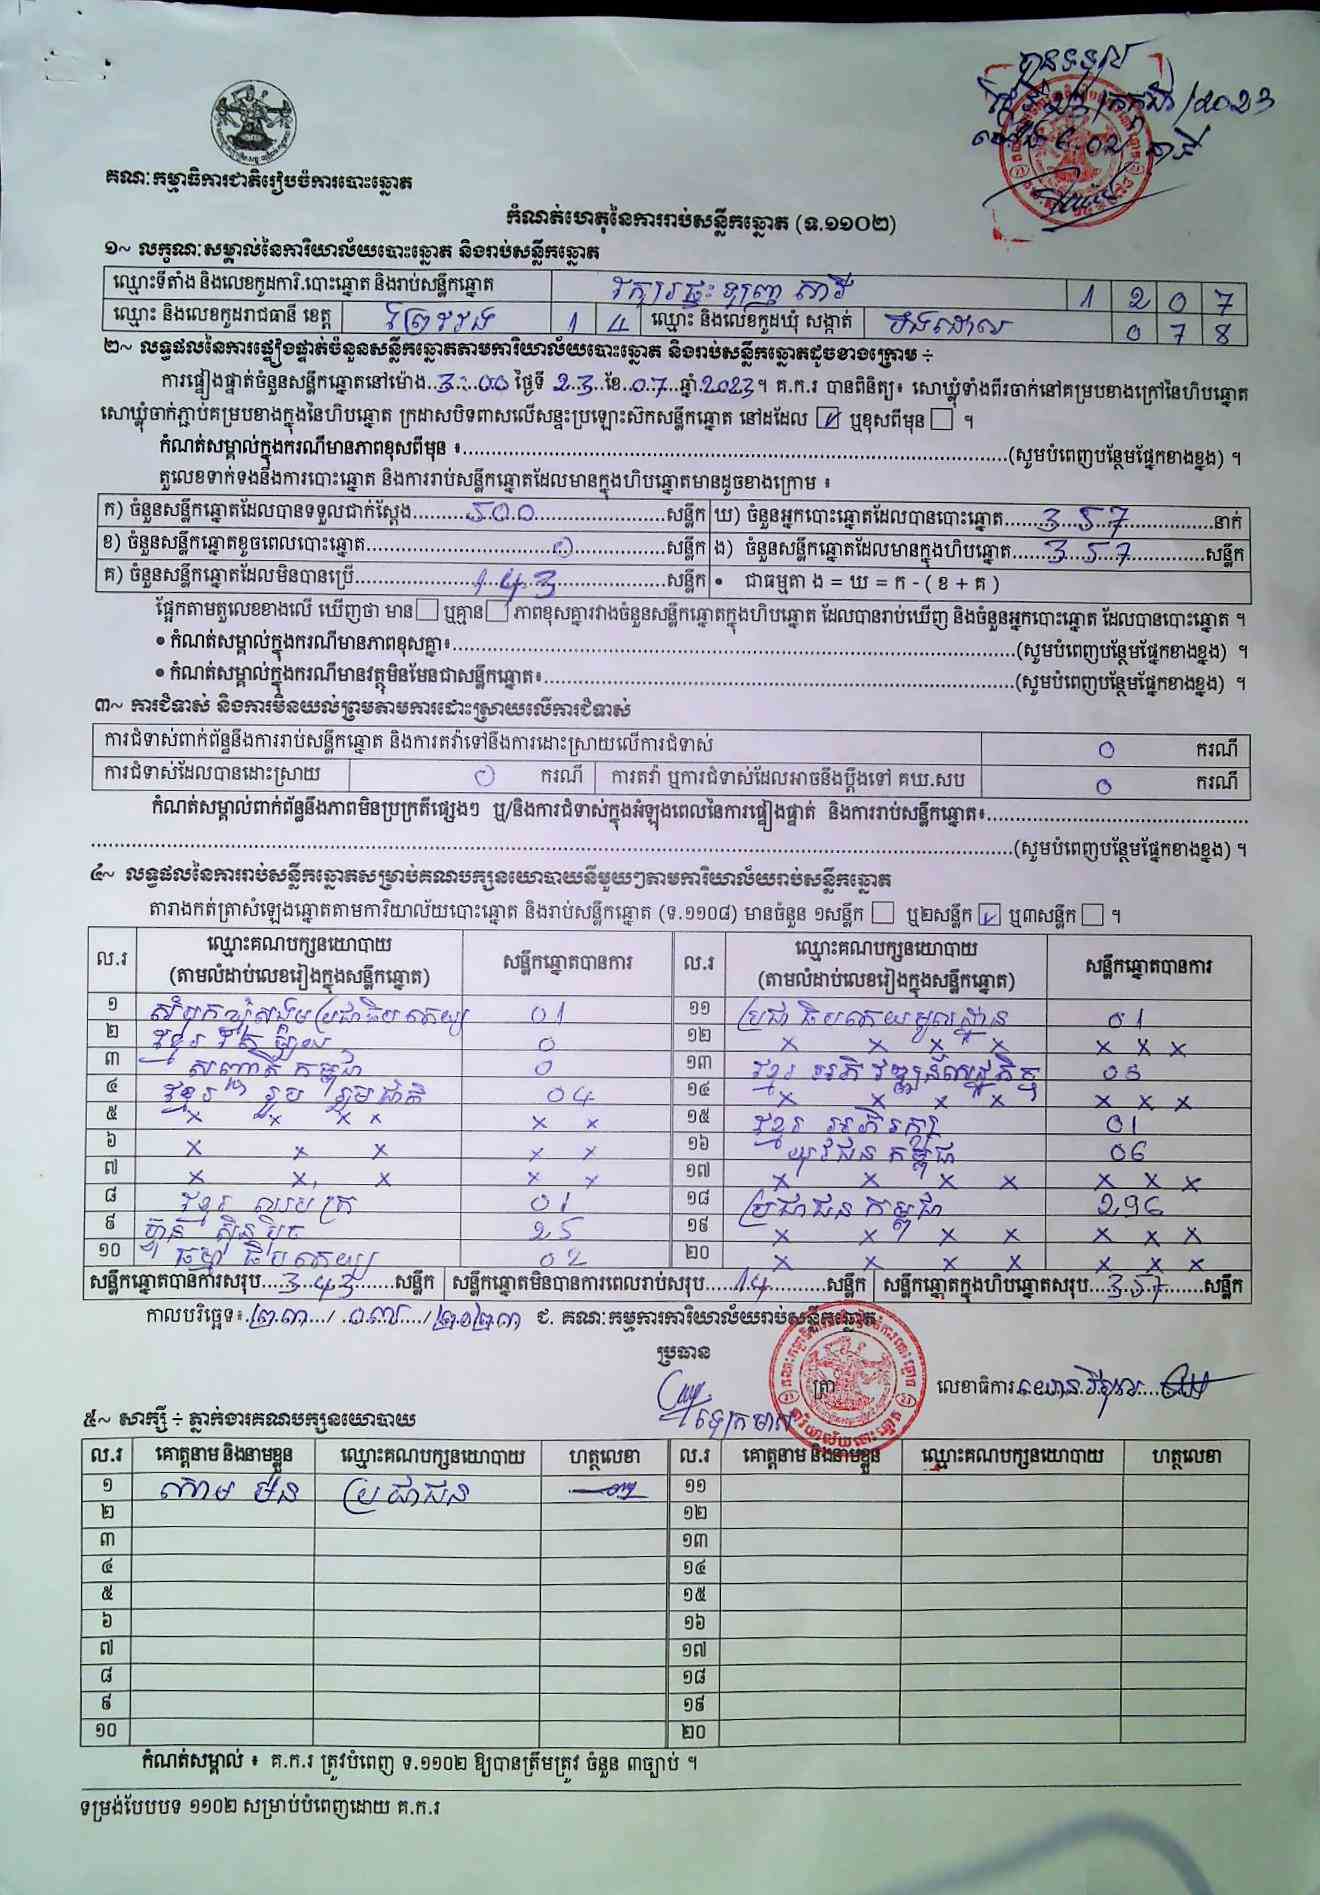 បានទទួល
គណៈកម្មាធិការជាតិរៀបចំការបោះឆ្នោត
កំណត់ហេតុនៃការរាប់សន្លឹកឆ្នោត (ទ.១១០២)
១~ លក្ខណៈសម្គាល់នៃការិយាល័យបោះឆ្នោត និងរាប់សន្លឹកឆ្នោត
ឈ្មោះទីតាំង និងលេខកូដការិ.បោះឆ្នោត និងរាប់សន្លឹកឆ្នោត 1 2 0 7
ឈ្មោះ និងលេខកូដរាជធានី ខេត្ត ព្រៃវែង 1 4 ឈ្មោះ និងលេខកូដឃុំ សង្កាត់ 0 7 8
២~ លទ្ធផលនៃការផ្ទៀងផ្ទាត់ចំនួនសន្លឹកឆ្នោតតាមការិយាល័យបោះឆ្នោត និងរាប់សន្លឹកឆ្នោតដូចខាងក្រោម ÷
ការផ្ទៀងផ្ទាត់ចំនួនសន្លឹកឆ្នោតនៅម៉ោង..3:..00 ថ្ងៃទី 23..ខែ.07..ឆ្នាំ.2023។ គ.ក.រ បានពិនិត្យ៖ សោឃ្លុំទាំងពីរចាក់នៅគម្របខាងក្រៅនៃហិបឆ្នោត
សោឃ្លុំចាក់ភ្ជាប់គម្របខាងក្នុងនៃហិបឆ្នោត ក្រដាសបិទពាសលើសន្ទះប្រឡោះស៊កសន្លឹកឆ្នោត នៅដដែល ☑ ឬខុសពីមុន ☐ ។
កំណត់សម្គាល់ក្នុងករណីមានភាពខុសពីមុន ៖..........(សូមបំពេញបន្ថែមផ្នែកខាងខ្នង) ។
តួលេខទាក់ទងនឹងការបោះឆ្នោត និងការរាប់សន្លឹកឆ្នោតដែលមានក្នុងហិបឆ្នោតមានដូចខាងក្រោម ៖
ក) ចំនួនសន្លឹកឆ្នោតដែលបានទទួលជាក់ស្តែង.........500.........សន្លឹក ឃ) ចំនួនអ្នកបោះឆ្នោតដែលបានបោះឆ្នោត.......357.......នាក់
ខ) ចំនួនសន្លឹកឆ្នោតខូចពេលបោះឆ្នោត.........0.........សន្លឹក ង) ចំនួនសន្លឹកឆ្នោតដែលមានក្នុងហិបឆ្នោត.......357.......សន្លឹក
គ) ចំនួនសន្លឹកឆ្នោតដែលមិនបានប្រើ.........143.........សន្លឹក • ជាធម្មតា ង = ឃ = ក - ( ខ + គ )
ផ្អែកតាមតួលេខខាងលើ ឃើញថា មាន☐ ឬគ្មាន☐ ភាពខុសគ្នារវាងចំនួនសន្លឹកឆ្នោតក្នុងហិបឆ្នោត ដែលបានរាប់ឃើញ និងចំនួនអ្នកបោះឆ្នោត ដែលបានបោះឆ្នោត ។
• កំណត់សម្គាល់ក្នុងករណីមានភាពខុសគ្នា៖..........(សូមបំពេញបន្ថែមផ្នែកខាងខ្នង) ។
• កំណត់សម្គាល់ក្នុងករណីមានវត្ថុមិនមែនជាសន្លឹកឆ្នោត៖..........(សូមបំពេញបន្ថែមផ្នែកខាងខ្នង) ។
៣~ ការជំទាស់ និងការមិនយល់ព្រមតាមការដោះស្រាយលើការជំទាស់
ការជំទាស់ពាក់ព័ន្ធនឹងការរាប់សន្លឹកឆ្នោត និងការតវ៉ាទៅនឹងការដោះស្រាយលើការជំទាស់ 0 ករណី
ការជំទាស់ដែលបានដោះស្រាយ 0 ករណី ការតវ៉ា ឬការជំទាស់ដែលអាចនឹងប្តឹងទៅ គឃ.សប 0 ករណី
កំណត់សម្គាល់ពាក់ព័ន្ធនឹងភាពមិនប្រក្រតីផ្សេងៗ ឬ/និងការជំទាស់ក្នុងអំឡុងពេលនៃការផ្ទៀងផ្ទាត់ និងការរាប់សន្លឹកឆ្នោត៖..........
..........(សូមបំពេញបន្ថែមផ្នែកខាងខ្នង) ។
៤~ លទ្ធផលនៃការរាប់សន្លឹកឆ្នោតសម្រាប់គណបក្សនយោបាយនីមួយៗតាមការិយាល័យរាប់សន្លឹកឆ្នោត
តារាងកត់ត្រាសំឡេងឆ្នោតតាមការិយាល័យបោះឆ្នោត និងរាប់សន្លឹកឆ្នោត (ទ.១១០៨) មានចំនួន ១សន្លឹក ☐ ឬ២សន្លឹក ☑ ឬ៣សន្លឹក ☐ ។
ល.រ ឈ្មោះគណបក្សនយោបាយ (តាមលំដាប់លេខរៀងក្នុងសន្លឹកឆ្នោត) សន្លឹកឆ្នោតបានការ ល.រ ឈ្មោះគណបក្សនយោបាយ (តាមលំដាប់លេខរៀងក្នុងសន្លឹកឆ្នោត) សន្លឹកឆ្នោតបានការ
១ សំបុកឃ្មុំសង្គមប្រជាធិបតេយ្យ 01 ១១ ប្រជាធិបតេយ្យមូលដ្ឋាន 01
២ ខ្មែរ រីក ចម្រើន 0 ១២ × × × × × × ×
៣ សញ្ជាតិ កម្ពុជា 0 ១៣ ខ្មែរ អភិវឌ្ឍន៍សេដ្ឋកិច្ច 05
៤ ខ្មែរ រួប រួមជាតិ 04 ១៤ × × × × × × ×
៥ × × × × × × ១៥ ខ្មែរ អភិរក្ស 01
៦ × × × × × ១៦ យុវជន កម្ពុជា 06
៧ × × × × × ១៧ × × × × × × ×
៨ ខ្មែរ ឈប់ក្រ 01 ១៨ ប្រជាជនកម្ពុជា 296
៩ ហ៊្វុនស៊ិនប៉ិច 25 ១៩ × × × × × × ×
១០ ធម្មាធិបតេយ្យ 02 ២០ × × × × × × ×
សន្លឹកឆ្នោតបានការសរុប...343......សន្លឹក សន្លឹកឆ្នោតមិនបានការពេលរាប់សរុប.....14.......សន្លឹក សន្លឹកឆ្នោតក្នុងហិបឆ្នោតសរុប...357......សន្លឹក
កាលបរិច្ឆេទ៖.២៣.../.០៧.../២០២៣ ជ. គណៈកម្មការការិយាល័យរាប់សន្លឹកឆ្នោត
ប្រធាន
ត្រា
លេខាធិការ
៥~ សាក្សី ÷ ភ្នាក់ងារគណបក្សនយោបាយ
ល.រ គោត្តនាម និងនាមខ្លួន ឈ្មោះគណបក្សនយោបាយ ហត្ថលេខា ល.រ គោត្តនាម និងនាមខ្លួន ឈ្មោះគណបក្សនយោបាយ ហត្ថលេខា
១ ប្រជាជន ១១
២ ១២
៣ ១៣
៤ ១៤
៥ ១៥
៦ ១៦
៧ ១៧
៨ ១៨
៩ ១៩
១០ ២០
កំណត់សម្គាល់ ៖ គ.ក.រ ត្រូវបំពេញ ទ.១១០២ ឱ្យបានត្រឹមត្រូវ ចំនួន ៣ច្បាប់ ។
ទម្រង់បែបបទ ១១០២ សម្រាប់បំពេញដោយ គ.ក.រ